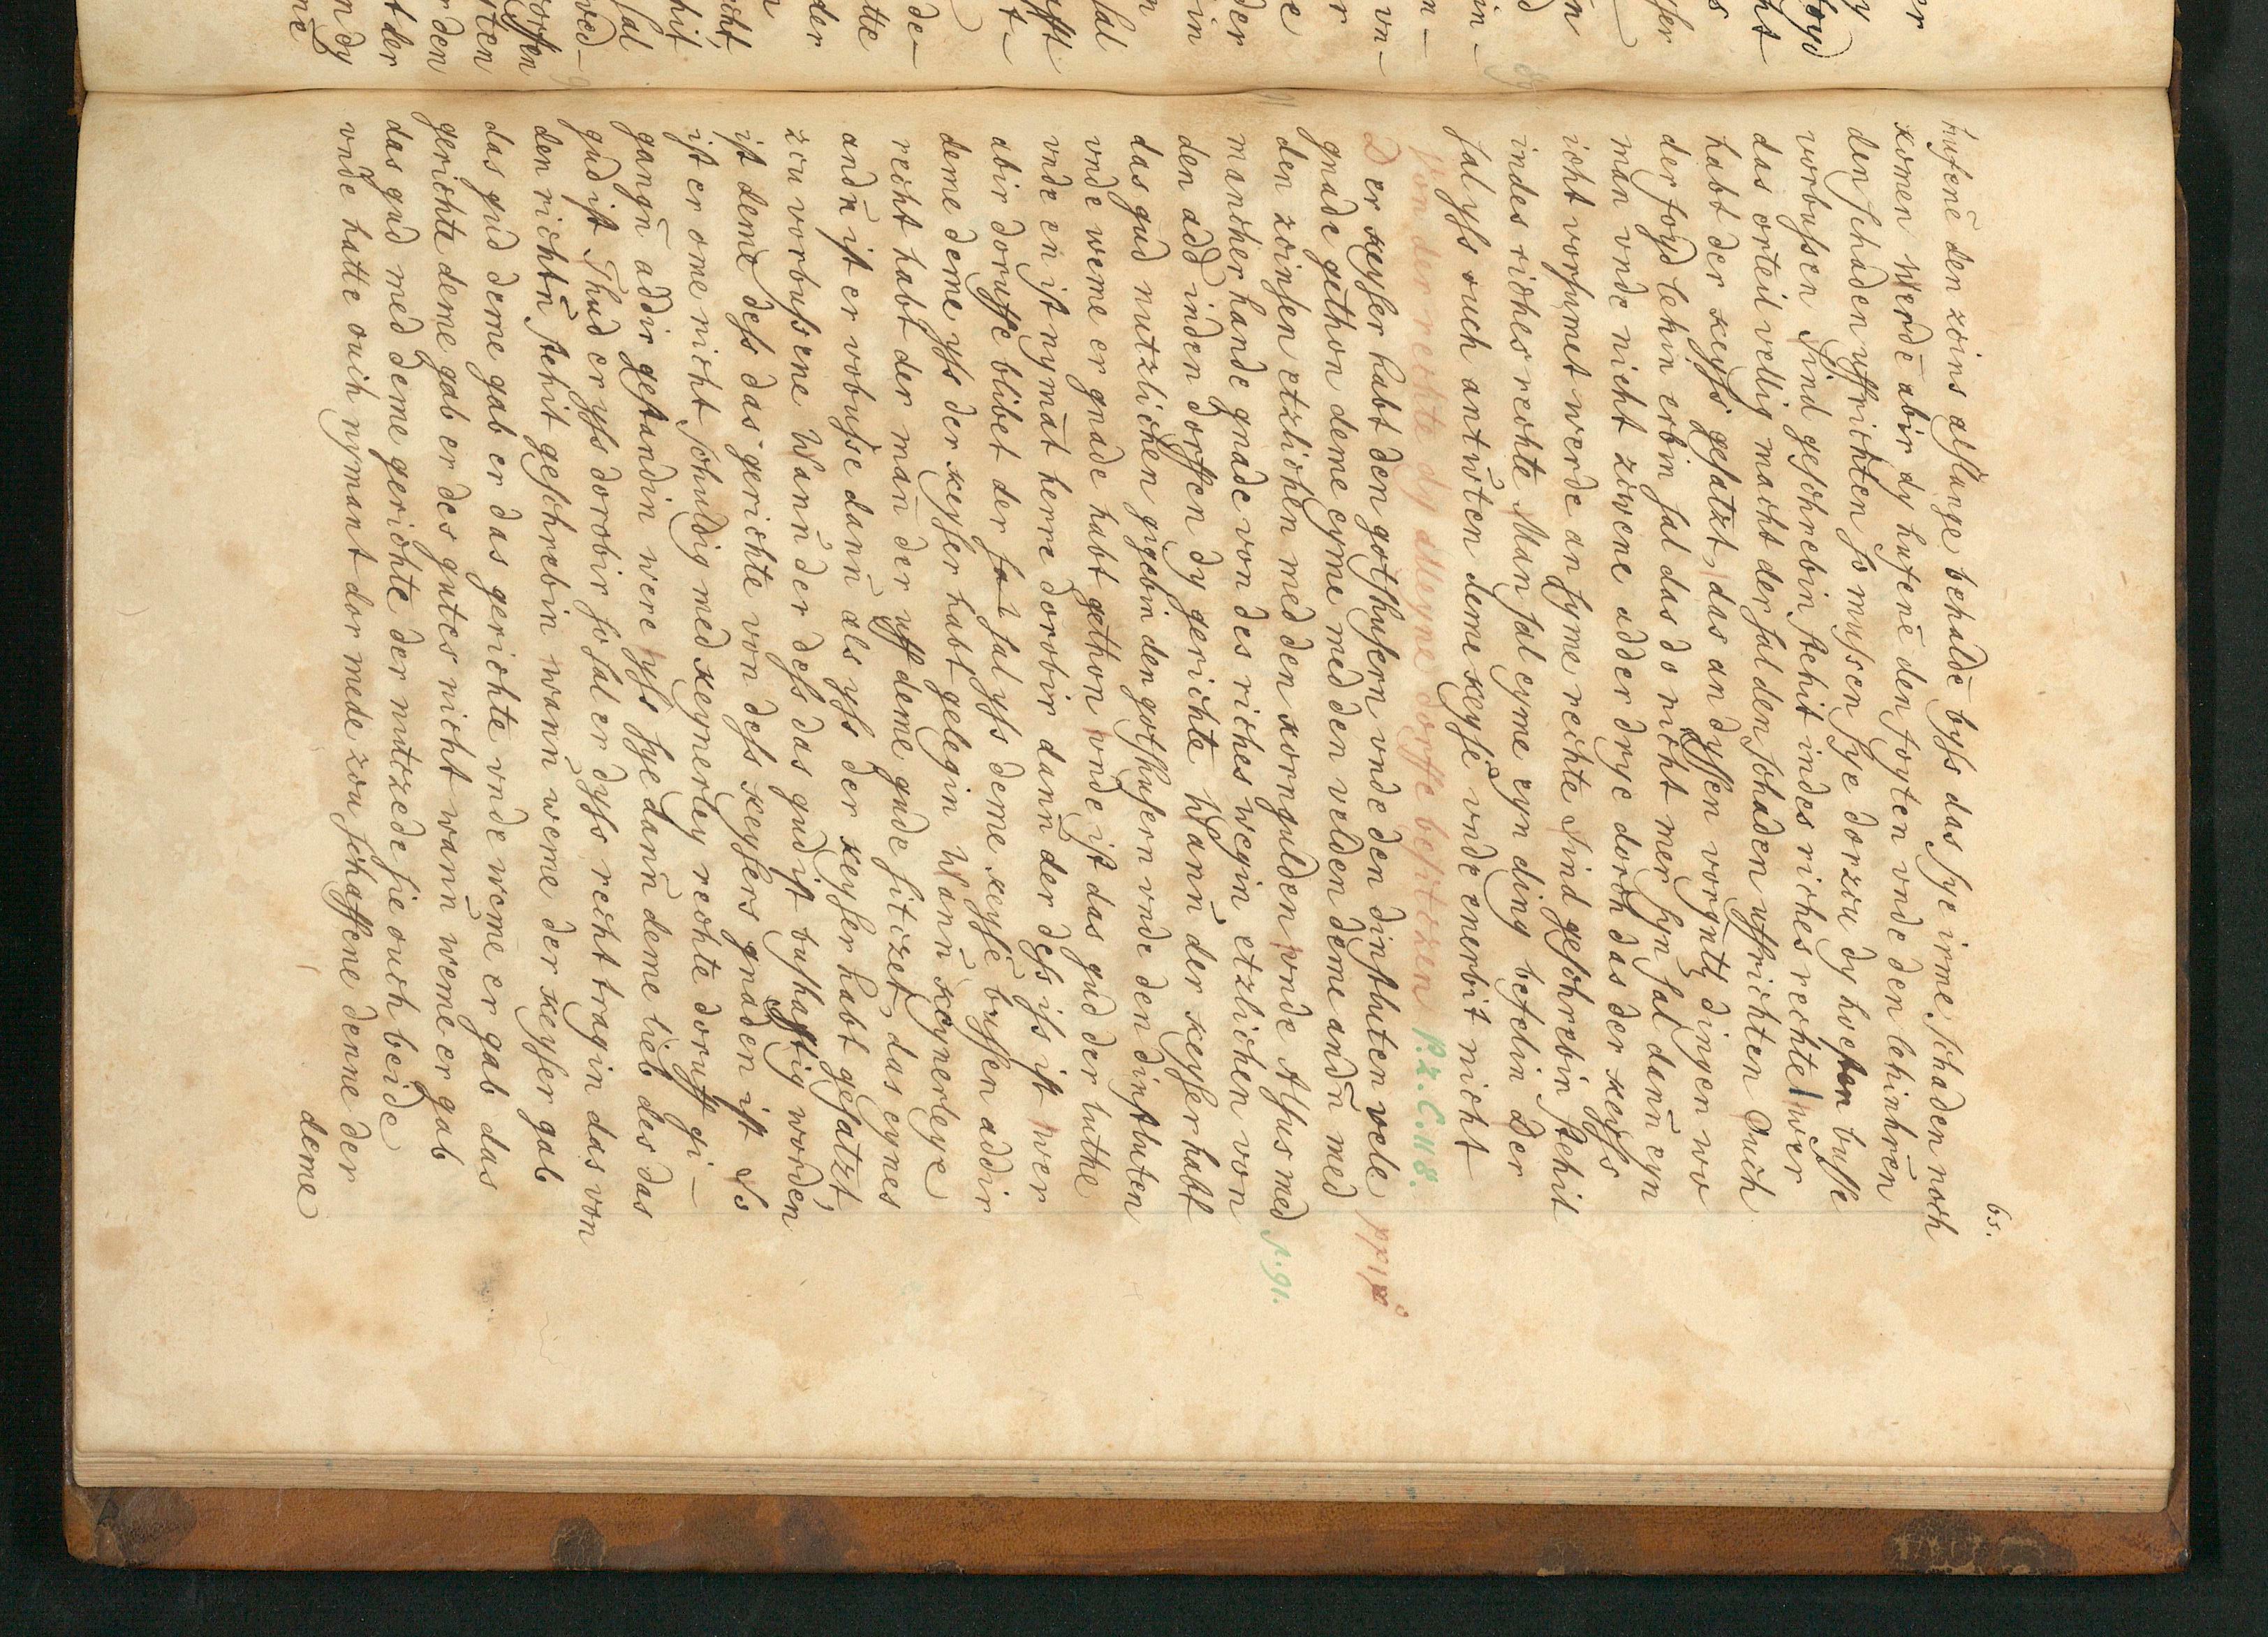 65.
hufenē den zcins alslange behaldē byſs das ſye irme ſchaden noch
komen Werdē abir dy hufenē den foyten vnde den lehinhrēn
den ſchaden vffrichten ſo muſsen ſye dorzcu dy hoeſten buſſe
vorbuſsen Sind geſchrebin ſtehit indes riches rechte wer
das orteil vellig macht der ſal den ſchaden vffrichten Ouch
habt der keyſs' geſatzt, das an dyſſen vorgn̄tē dingen wo
der foyd lehin erbin ſal das do nicht mer ſyn ſal dann̄ eyn
man vnde nicht zcwene adder drye dorch das der keyſs'
icht vorſumet werde an ſyme rechte Sind geſchrebin ſtehit
indes riches rechte Man ſal eyme eyn ding befelin Der
ſal yſs ouch antw̄ten deme keyſe' vnde enerbit nicht
Von der rechte dy alleyne dorffe beſitczen P. 2. C. 118.
Der keyſer habt den gotſhuſern vnde den dinſtluten vele
gnade gethon deme eyme med den velden deme andn̄ med
den zcinſen etzlichen med den korngulden vnde Alſus med
s. 91.
mancher hande gnade von des riches wegin etzlichen von
den add' inden dorffen dy gerichte Wann̄ der keyſer habt
das gud nutzlichen gegebin den gotſhuſern vnde den dinſtluten
vnde weme er gnade habt gethon vnde iſt das gud der luthe
vnde en iſt nymāt herre dorobir dann̄ der deſs iſs iſt wer
abir doruffe blibet der ſal ſal yſs deme keyſe' buſſen addir
deme deme yſs der keyſer habt gelegin Wann̄ keynerleye
recht habt der man der vff deme gude ſitczet, das eynes
andn̄ iſt er vobuſse dann̄ als yſs der keyſer habt geſatzt,
zcu vorbuſsene Wann̄ der deſs das gud iſt buſhafftig worden
iſt deme deſs das gerichte von deſs keyſers gnaden iſt So
iſt er ome nicht ſchuldig med keynerley rechte doruff gi-
gangn̄ addir geſtandin were yſs ſye dann̄ deme lieb des das
gud iſt Thud er yſs dorobir ſo ſal er dyſs recht tragin das von
den richtn̄ ſtehit geſchrebin wann̄ weme der keyſer gab
das gud deme gab er das gerichte vnde weme er gab das
gerichte deme gab er des gutes nicht wann̄ weme er gab
das gud med deme gerichte der nutzede ſie ouch beide
vnde hatte ouch nymant dor mede zcu ſchaffene denne der
deme